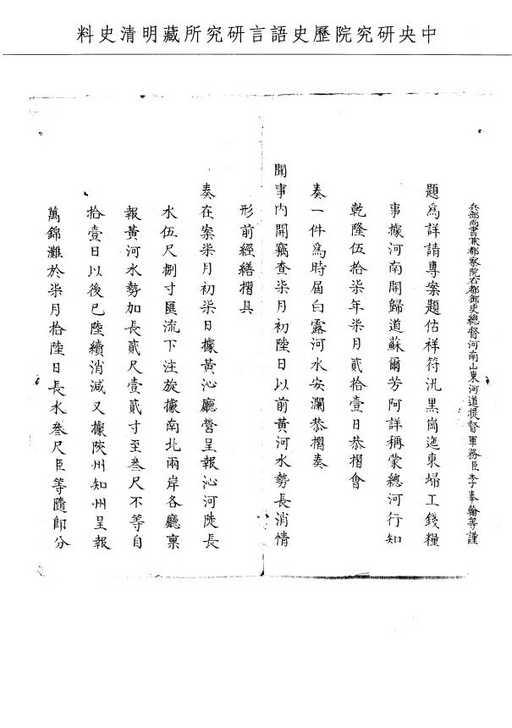 中央研究院歷史語言研究所藏明清史料
兵部尚書兼都察院右都御史總督河南山東河道提督軍務臣李奉翰等謹
題為詳請專案題估祥符汛黑崗迤東埽工錢糧
事據河南開歸道蘇爾芳阿詳稱蒙總河行知
乾隆伍拾柒年柒月貳拾壹日恭摺會
奏一件為時屆白露河水安瀾恭摺奏
聞事內開竊查柒月初陸日以前黃河水勢長消情
形前經繕摺具
奏在案柒月初柒日據黃沁廳營呈報沁河陡長
水伍尺捌寸匯流下注旋據南北兩岸各廳稟
報黃河水勢加長貳尺壹貳寸至叁尺不等自
拾壹日以後已陸續消減又據陝州知州呈報
萬錦灘於柒月拾陸日長水叁尺臣等隨即分